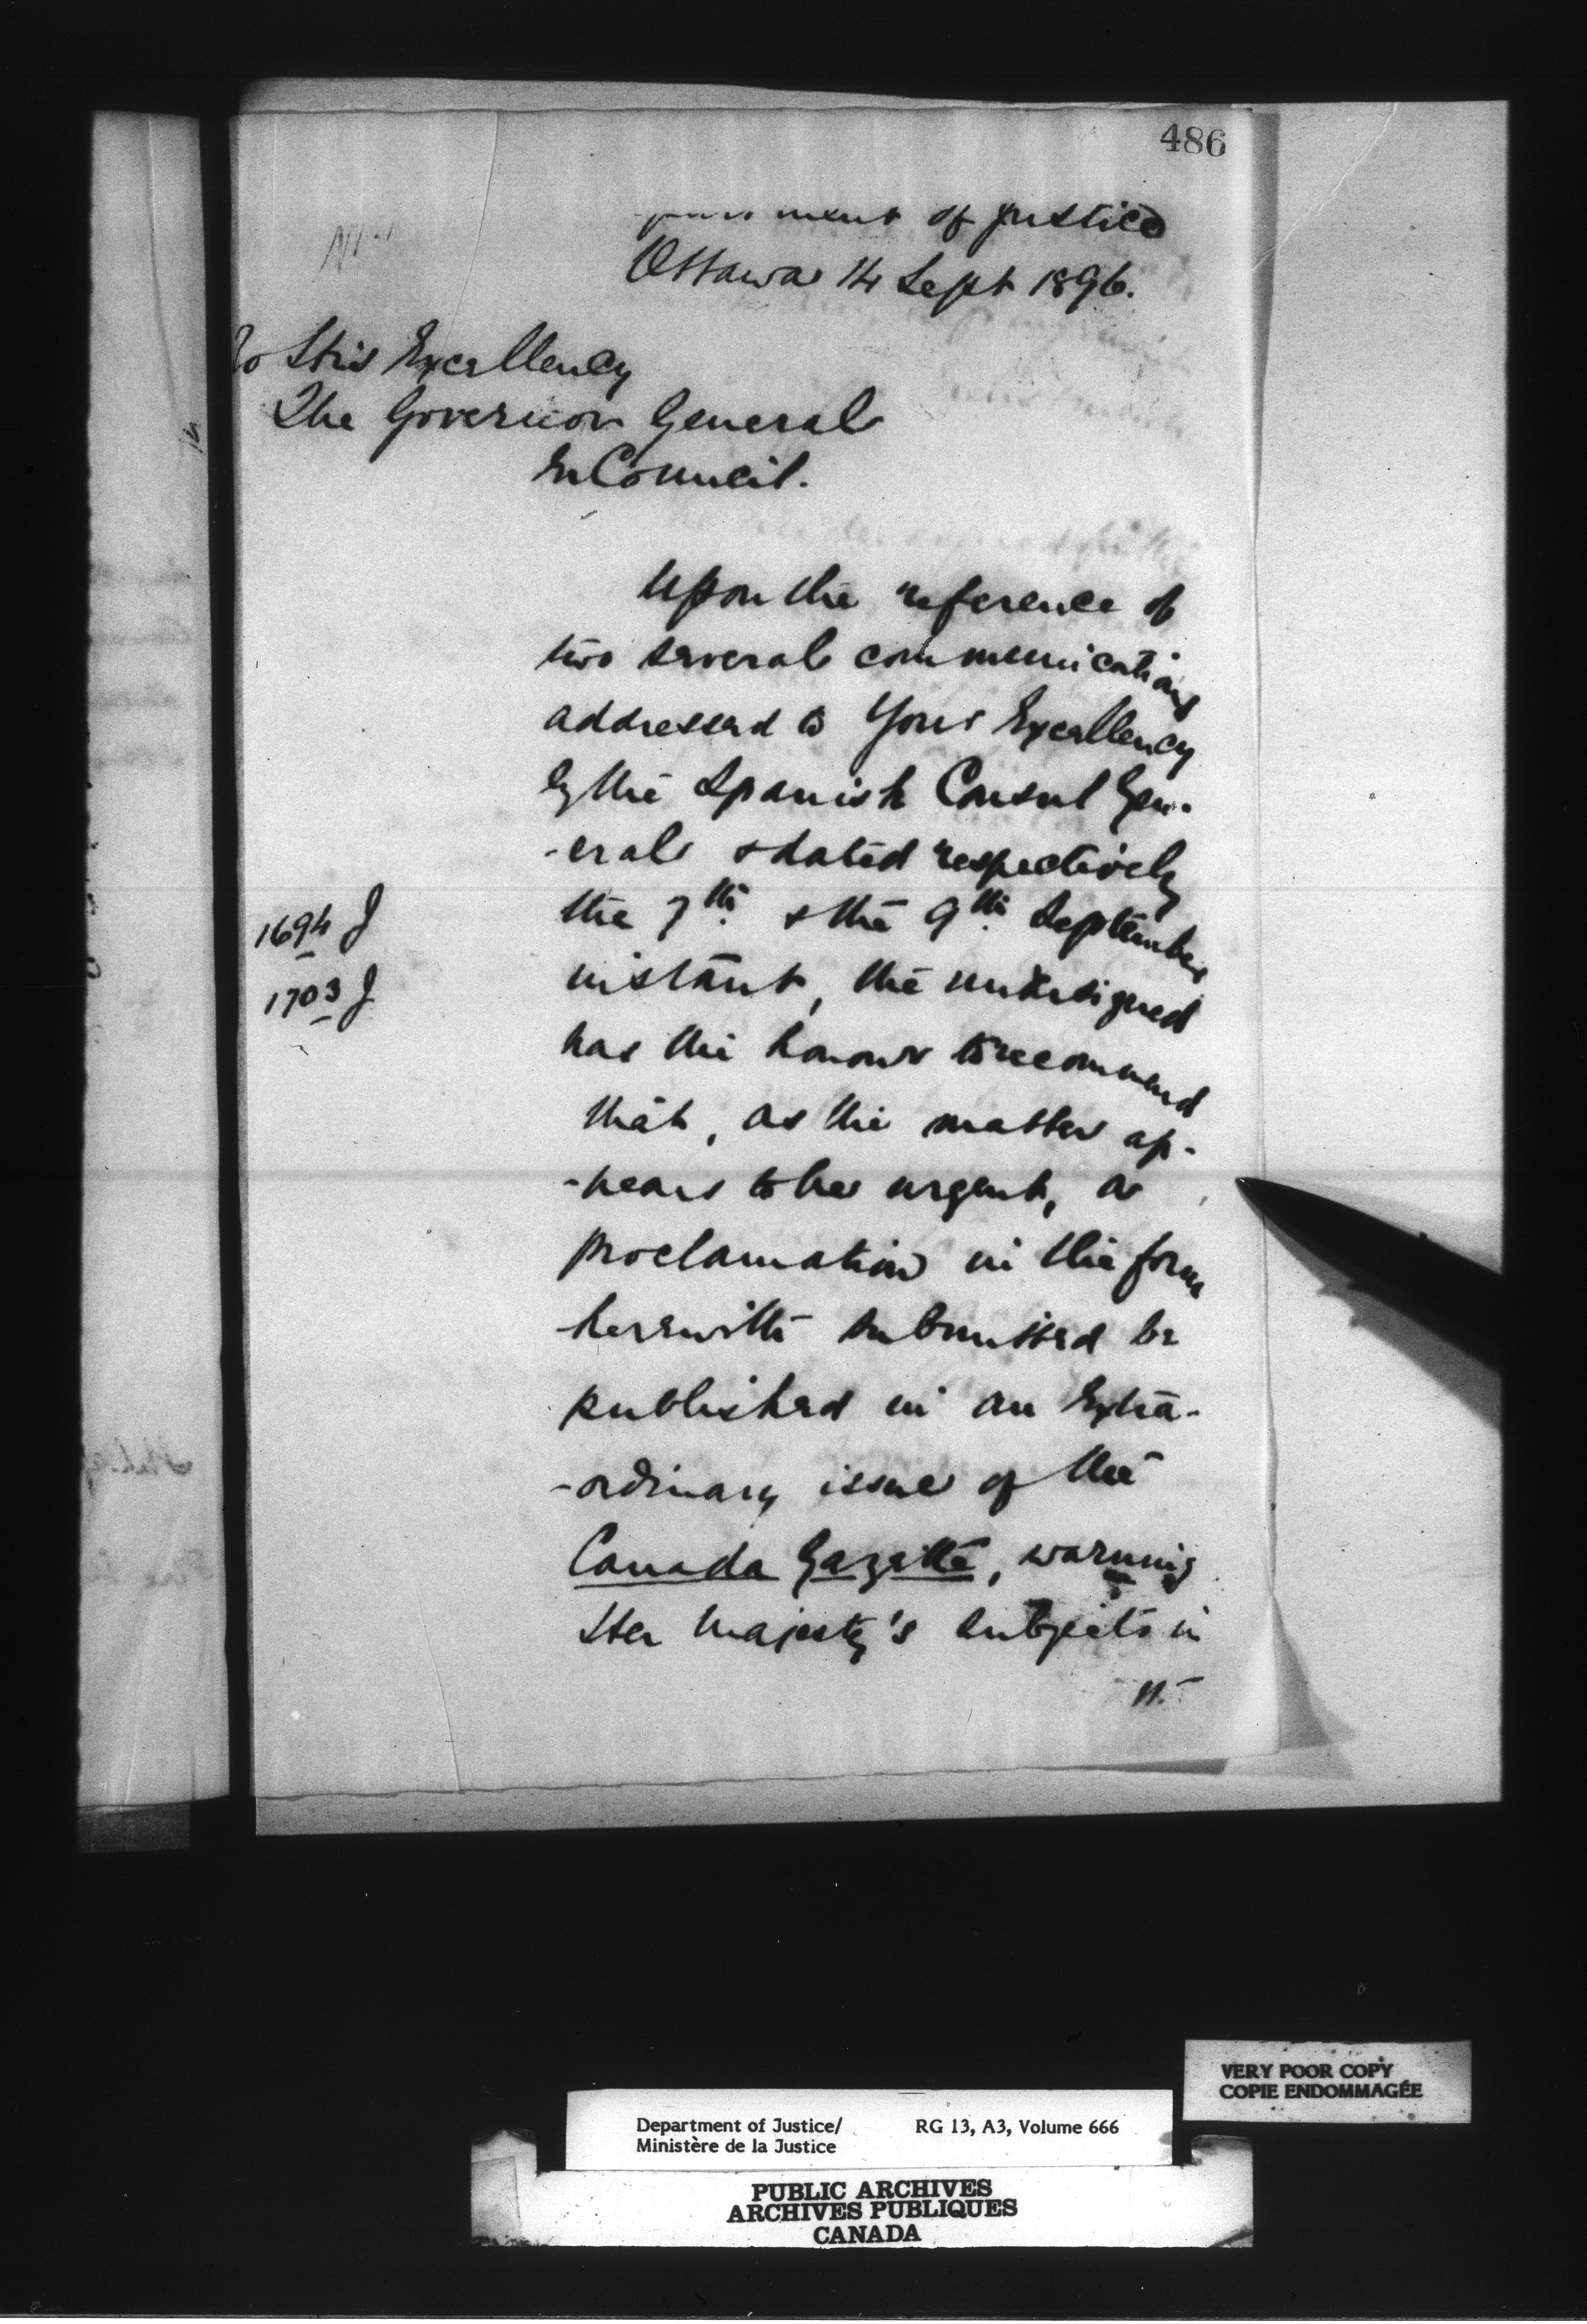 486
of Justice
Ottawa 14 Sept 1896.
To His Excellency
The Governor General
In Council.
Upon the reference of
two several communications
addressed to Your Excellency
by the Spanish Consul Gen-
-eral & dated respectively
the 7th. & the 9th. September
1694 J
instant, the undersigned
1703 J
has the honour to recommend
that, as the matter ap-
-pears to be urgent, a
proclamation in the form
herewith submitted be
published in an Extra-
-ordinary issue of the
Canada Gazette, warning
Her Majesty's subjects in
VERY POOR COPY
COPIE ENDOMMAGÉE
Department of Justice/ RG 13, A3, Volume 666
Ministère de la Justice
PUBLIC ARCHIVES
ARCHIVES PUBLIQUES
CANADA